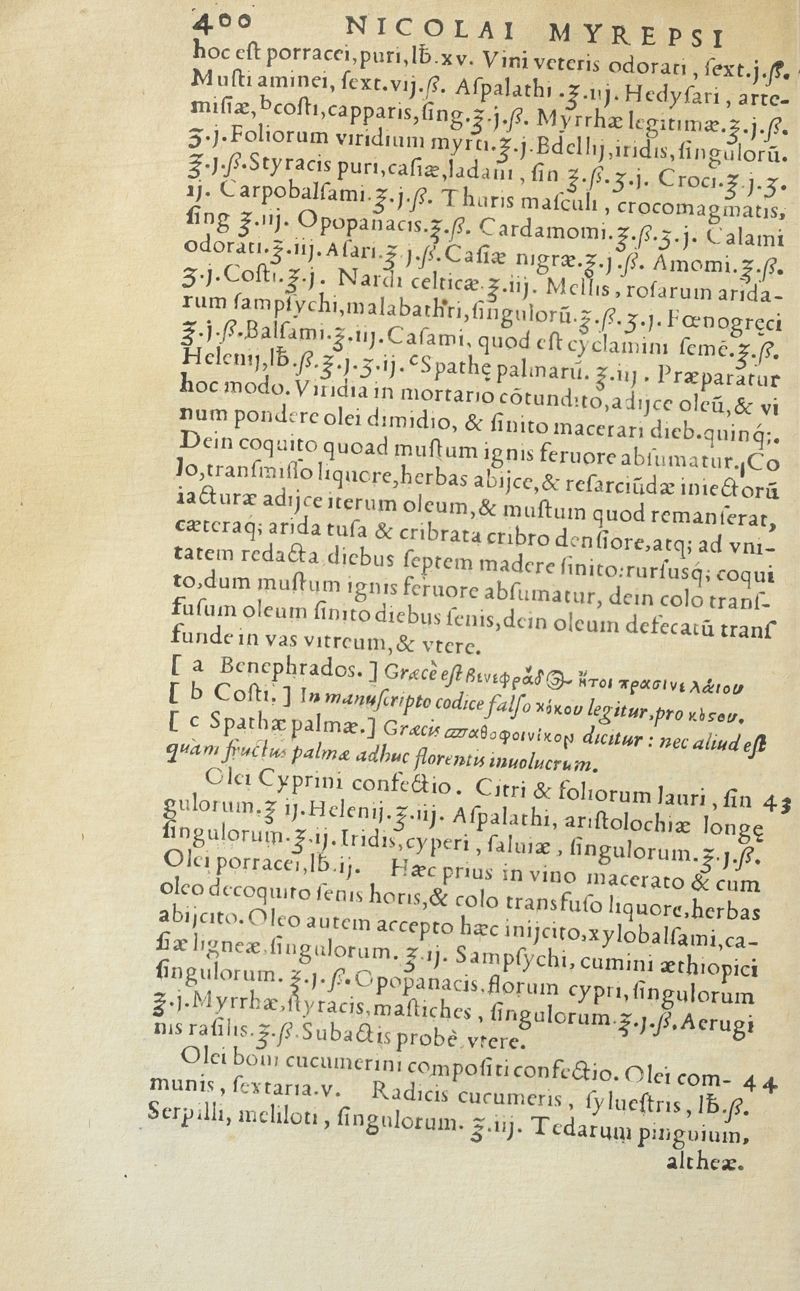 400 NICOLAI MYREPSI
hoc eſt porracei,puri,lƀ.xv. Vini veteris odorati, ſext.j.ß.
Muſti aminei, ſext.vij.ß. Aſpalathi .℥.iij. Hedyſari, arte-
miſiæ, bcoſti,capparis,ſing.℥.j.ß. Myrrhæ legitimæ.℥.j.ß.
ʒ.j.Foliorum viridium myrti.℥.j.Bdellij,iridis,ſingulorū.
℥.j.ß.Styracis puri,caſiæ,ladani, ſin ℥.ß.ʒ.j. Croci.℥ j.ʒ.
ij. Carpobalſami.℥.j.ß. Thuris maſculi, crocomagmatis,
ſing ℥.iij. Opopanacis.℥.ß. Cardamomi.℥.ß.ʒ.j. Calami
odorati.℥.iij.Aſari.℥ j.ß.Caſiæ nigræ.℥.j.ß. Amomi.℥.ß.
ʒ.j.Coſti.℥.j. Nardi celticæ.℥.iij. Mellis, roſarum arida-
rum ſampſychi,malabathri,ſingulorū.℥.ß.ʒ.j. Fœnogreci
℥.j.ß.Balſami.℥.iij.Caſami, quod eſt cyclamini ſemē.℥.ß.
Helenij,lƀ.ß.℥.j.ʒ.ij. cSpathę palmarū. ℥.iij. Præparatur
hoc modo. Viridia in mortario cōtundito,adijce oleū,& vi
num pondere olei dimidio, & ſinito macerari dieb.quinq;.
Dein coquito quoad muſtum ignis feruore abſumatur. Co
lo,tranſmiſſo liquore,herbas abijce,& reſarciūdæ iniectorū
iacturæ adijce iterum oleum,& muſtum quod remanſerat,
cæteraq; arida tuſa & cribrata cribro denſiore,atq; ad vni-
tatem redacta diebus ſeptem madere ſinito:rurſusq; coqui
to,dum muſtum ignis feruore abſumatur, dein colo tranſ-
fuſum oleum ſinito diebus ſenis,dein oleum defecatū tranſ
funde in vas vitreum,& vtere.
[ a Benephrados. ] Græcè eſt βενεφράδος ἤτοι πρασίνε λαίου
[ b Coſti. ] In manuſcripto codice falſo κόκου legitur,pro κόσου.
[ c Spathæ palmæ.] Græcis σπαθοφοινίκου dicitur : nec aliud eſt
quam fructus palmæ adhuc florentis inuolucrum.
Olei Cyprini confectio. Citri & foliorum lauri, ſin 43
gulorum.℥ ij.Helenij.℥.iij. Aſpalathi, ariſtolochiæ longę
ſingulorum.℥.ij.Iridis,cyperi, ſaluiæ, ſingulorum.℥.j.ß.
Olei porracei,lƀ.ij. Hæc prius in vino macerato & cum
oleo decoquito ſenis horis,& colo transfuſo liquore,herbas
abijcito.Oleo autem accepto hæc inijcito,xylobalſami,ca-
ſiæ ligneæ.ſingulorum.℥.ij. Sampſychi, cumini æthiopici
ſingulorum. ℥.j.ß.Opopanacis,florum cypri,ſingulorum
℥.j.Myrrhæ,ſtyracis,maſtiches, ſingulorum.℥.j.ß.Aerugi
nis raſilis.℥.ß.Subactis probè vtere.
Olei boni cucumerini compoſiti confectio. Olei com- 44
munis, ſextaria.v. Radicis cucumeris, ſylueſtris, lƀ.ß.
Serpilli, meliloti, ſingulorum. ℥.iij. Tedarum pinguium,
altheæ.